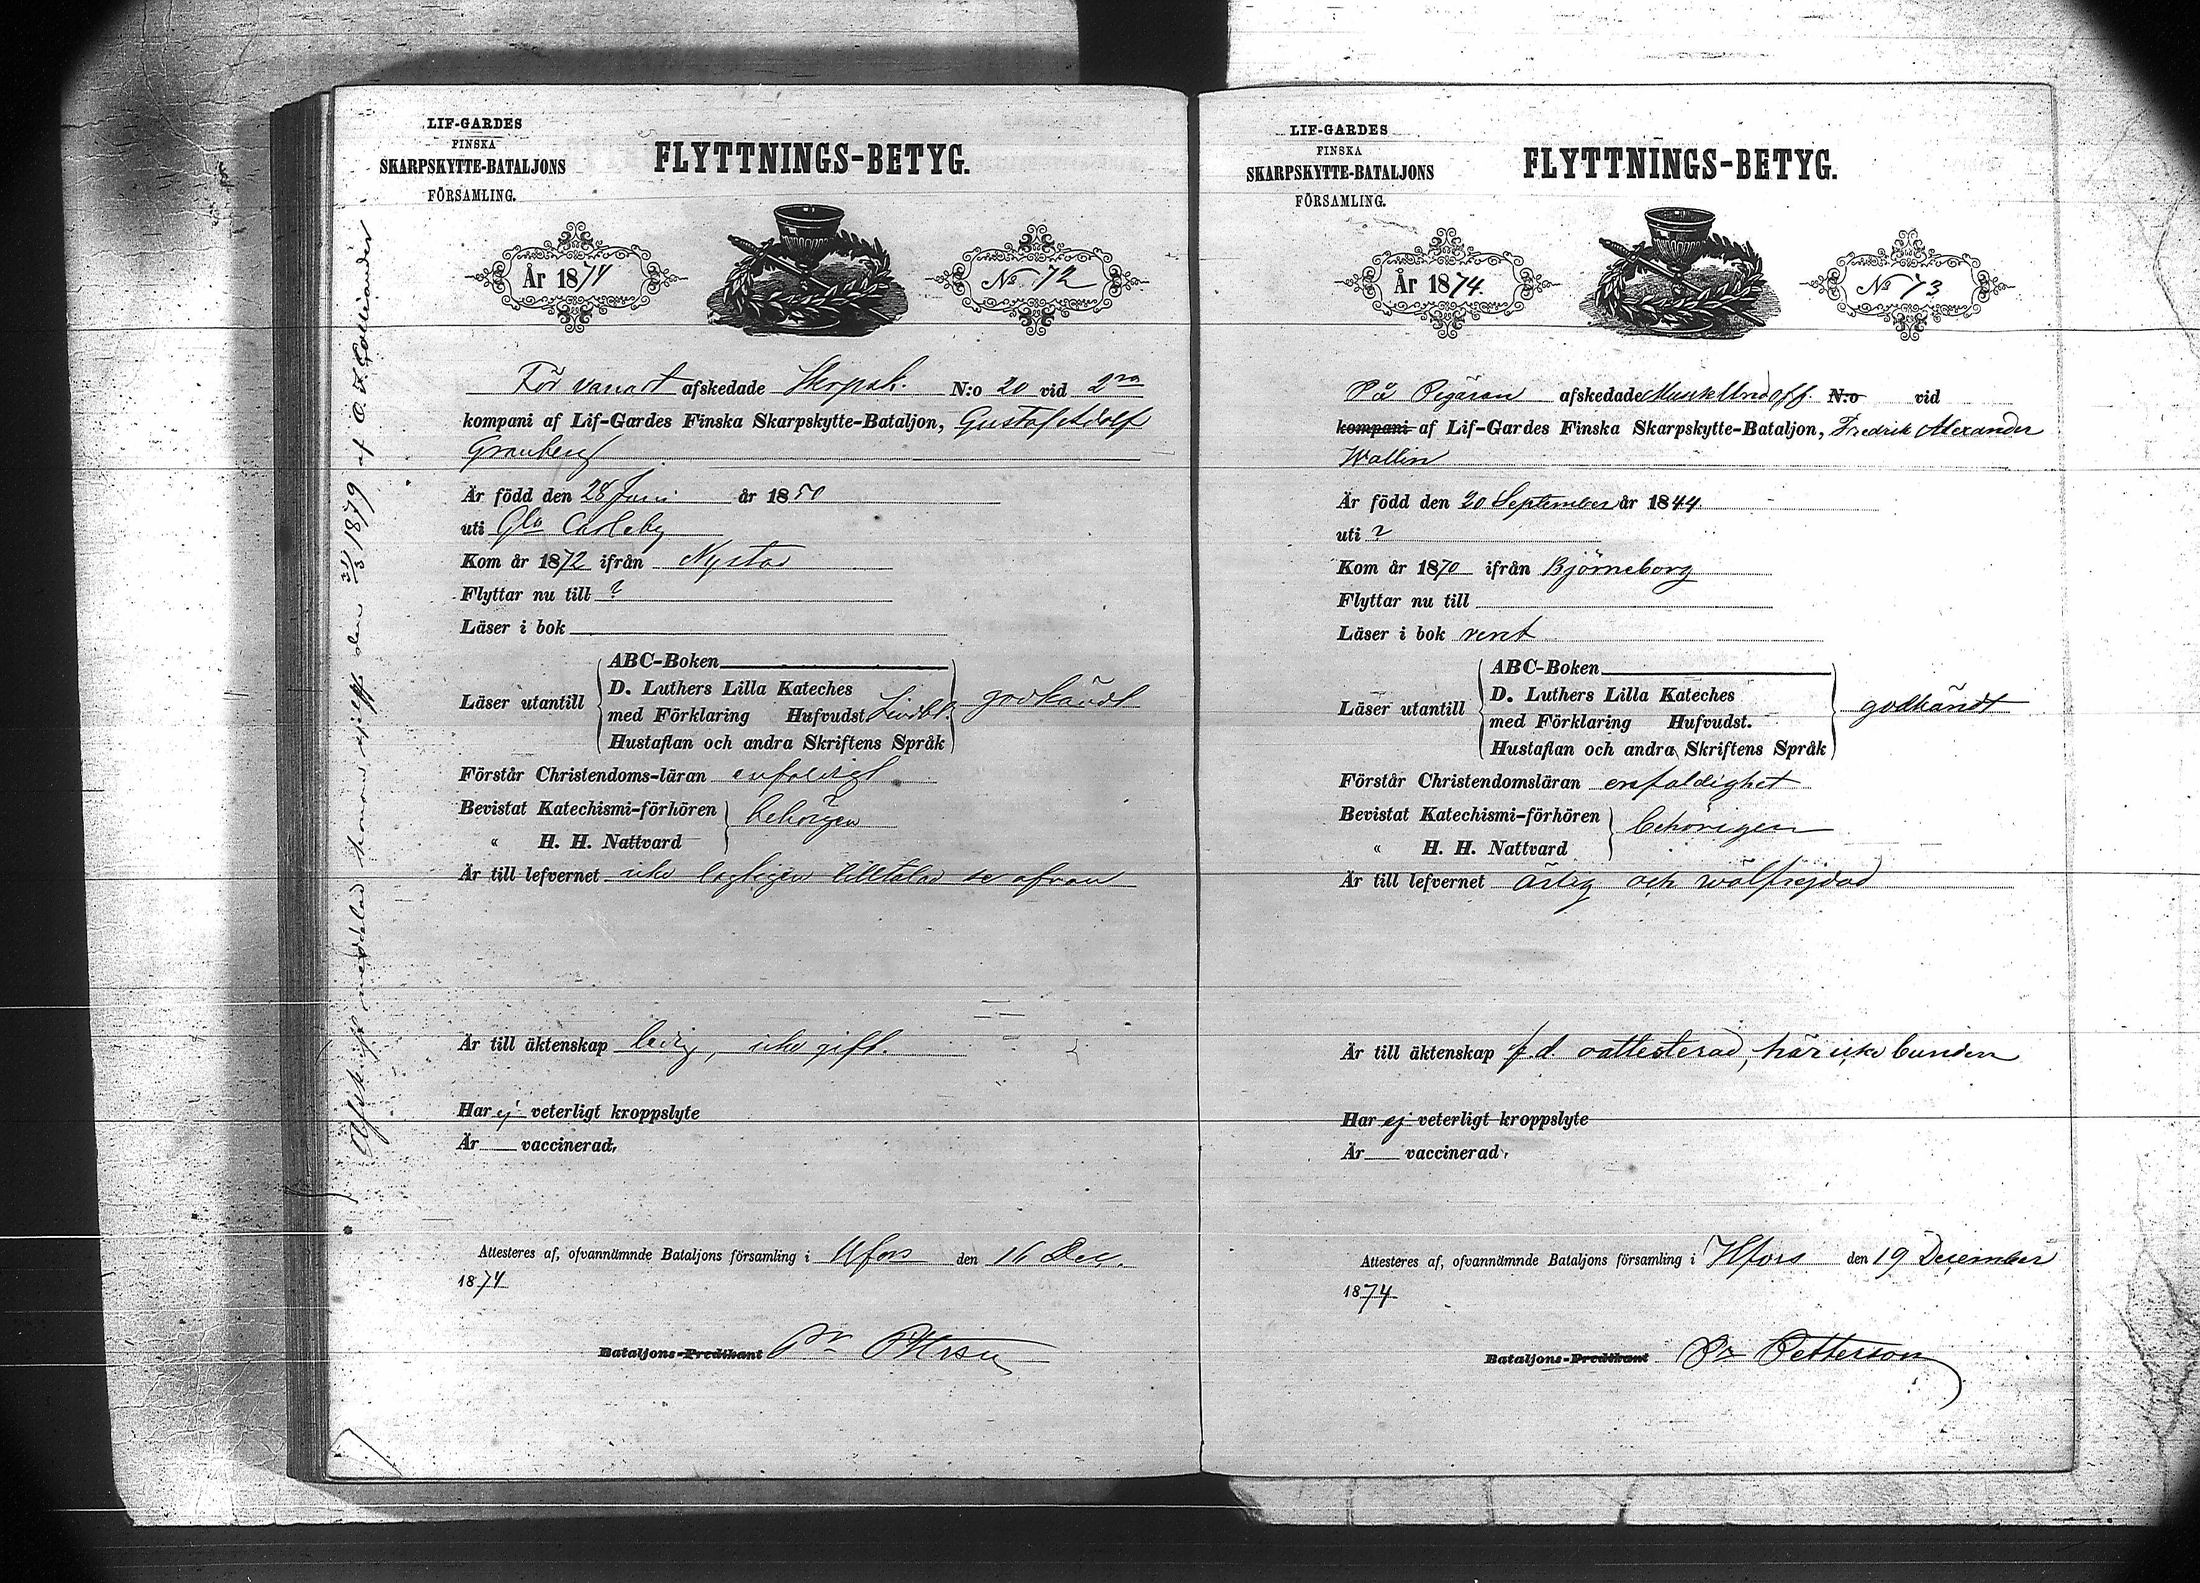 Afskrift meddelad honom sjelf den 31/3 1879 af
LIF-GARDES
FINSKA
SKARPSKYTTE-BATALJONS
FÖRSAMLING.
FLYTTNINGS-BETYG.
År 1874
No 72
För vanart afskedade Skrpsk. N:o 20 vid 2ra
kompani af Lif-Gardes Finska Skarpskytte-Bataljon, Gustaf Adolf
Granberg
Är född den 28 Juni år 1850
uti Gla Carleby
Kom år 1872 ifrån Nystad
Flyttar nu till ?
Läser i bok
Läser utantill
ABC-Boken
D. Luthers Lilla Kateches
med Förklaring Hufvudst. Lindbl.
Hustaflan och andra Skriftens Språk
godkändt
Förstår Christendoms-läran enfaldigt
Bevistat Katechismi-förhören
" H. H. Nattvard
behörigen
Är till lefvernet icke lagligen tilltalad
Är till äktenskap ledig, icke gift.
Har ej veterligt kroppslyte
Är vaccinerad,
Attesteres af, ofvannämnde Bataljons församling i Hfors den 16 Dec.
1874
Bataljons-Predikant
LIF-GARDES
FINSKA
SKARPSKYTTE-BATALJONS
FÖRSAMLING.
FLYTTNINGS-BETYG.
År 1874.
No 73
På begäran afskedade N:o vid
kompani af Lif-Gardes Finska Skarpskytte-Bataljon, Fredrik Alexander
Wallin
Är född den 20 September år 1844.
uti ?
Kom år 1870 ifrån Björneborg
Flyttar nu till
Läser i bok rent
Läser utantill
ABC-Boken
D. Luthers Lilla Kateches
med Förklaring Hufvudst.
Hustaflan och andra Skriftens Språk
godkändt
Förstår Christendomsläran enfaldighet
Bevistat Katechismi-förhören
" H. H. Nattvard
behörigen
Är till lefvernet ärlig och wälfrejdad
Är till äktenskap f.d. oattesterad, här icke bunden
Har ej veterligt kroppslyte
Är vaccinerad,
Attesteres af, ofvannämnde Bataljons församling i Hfors den 19 December
1874
Bataljons-Predikant Petterson